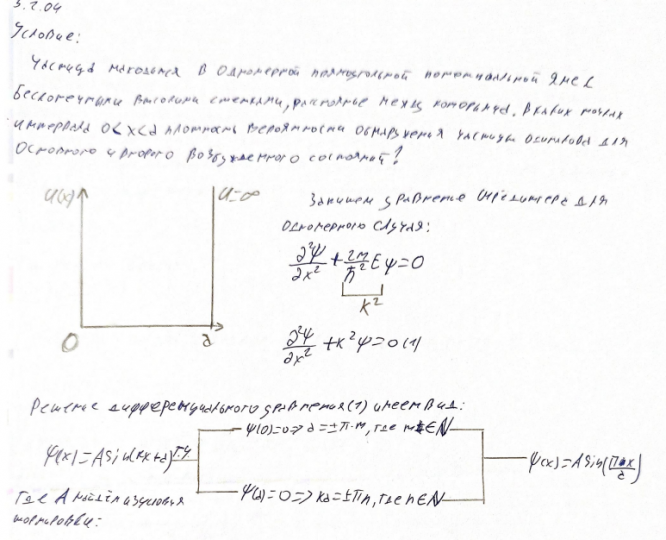 3.2.04
Условие:
Частица находится в одномерной прямоугольной потенциальной яме с
бесконечными высокими стенками, расстояние между которыми a. В каких точках
интервала 0<x<a плотность вероятности обнаружения частицы одинакова для
основного и второго возбужденного состояний?
U(x)
U=∞
0
a
Запишем уравнение Шредингера для
одномерного случая:
∂²Ψ/∂x² + 2m/ħ² Eψ=0
k²
∂²Ψ/∂x² +k²ψ=0 (1)
Решение дифференциального уравнения (1) имеет вид:
ψ(0)=0 => α=±π·m, где m∈N
ψ(x)=A sin(kx+α)
ψ(x)=A sin(πnx/a)
ψ(a)=0 => ka=±πn, где n∈N
где A найдём из условия
нормировки: